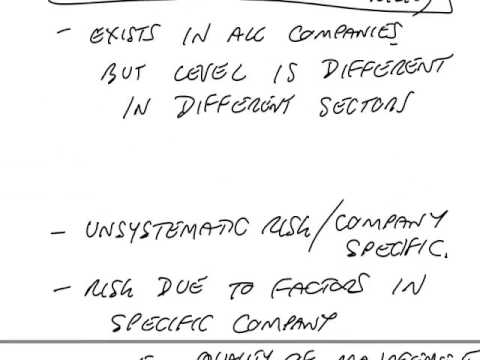 - EXISTS IN ALL COMPANIES
BUT LEVEL IS DIFFERENT
IN DIFFERENT SECTORS
- UNSYSTEMATIC RISK/COMPANY
SPECIFIC.
- RISK DUE TO FACTORS IN
SPECIFIC COMPANY
QUALITY OF